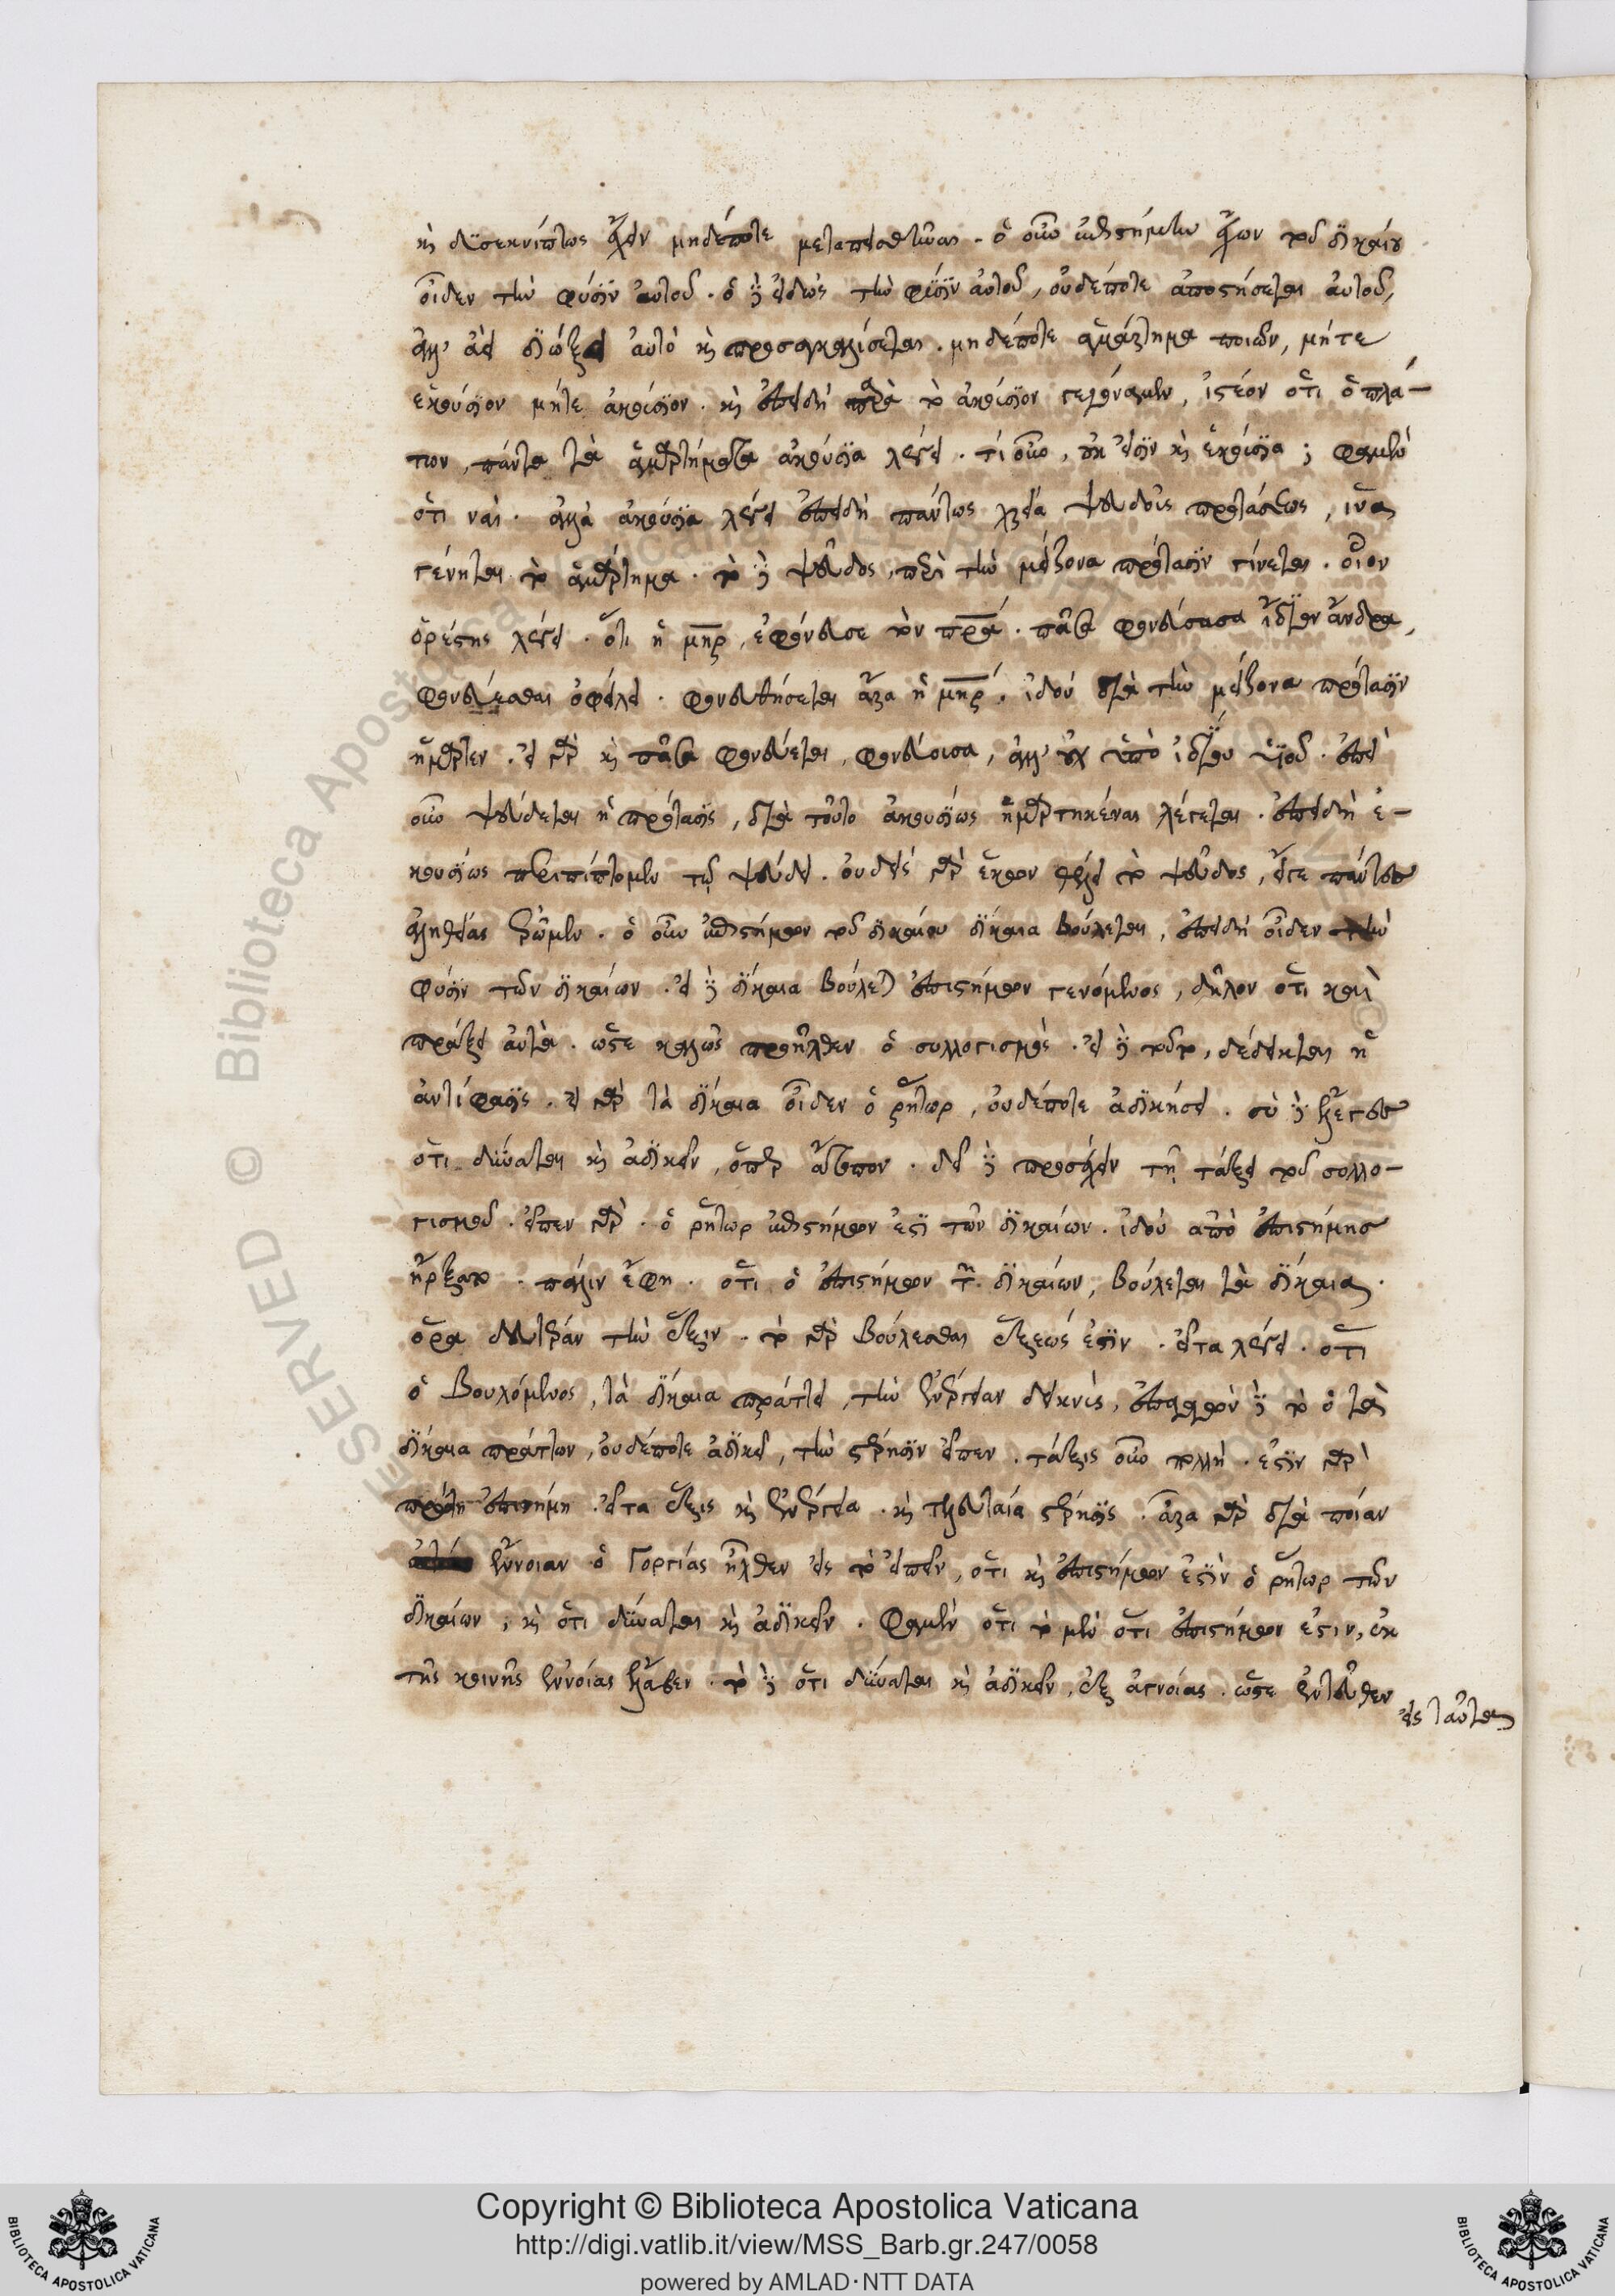 καὶ δυσεκνίπτως ἔχειν μηδέποτε μεταπεισθῆναι. ὁ οὖν ἐπιστήμην ἔχων τοῦ δικαίου
οἶδεν τὴν φύσιν αὐτοῦ. ὁ δὲ εἰδὼς τὴν φύσιν αὐτοῦ, οὐδέποτε ἀποστήσεται αὐτοῦ,
ἀλλ' ἀεὶ διώξει αὐτὸ καὶ προσαγκαλίσεται. μηδέποτε ἁμάρτημα ποιῶν, μήτε
ἑκούσιον μήτε ἀκούσιον. καὶ ἐπειδὴ παρὰ τὸ ἀκούσιον γεγόναμεν, ἰστέον ὅτι ὁ πλά-
των, πάντα τὰ ἁμαρτήματα ἀκούσια λέγει. τί οὖν, οὐκ εἰσὶν καὶ ἑκούσια; φαμὲν
ὅτι ναί. ἀλλὰ ἀκούσια λέγει ἐπειδὴ πάντως χρεία ψευδοῦς προτάσεως, ἵνα
γένηται τὸ ἁμάρτημα. τὸ δὲ ψεῦδος, περὶ τὴν μείζονα πρότασιν γίνεται. οἷον
ὀρέστης λέγει. ὅτι ἡ μηρ, ἐφόνευσε τὸν πρα. πᾶσα φονεύσασα ἴδιον ἄνδρα,
φονεύεσθαι ὀφείλει. φονευθήσεται ἄρα ἡ μηρ. ἰδοὺ διὰ τὴν μείζονα πρότασιν
ἥμαρτεν. εἰ γὰρ καὶ πᾶσα φονεύεται, φονεύουσα, ἀλλ' οὐχ ὑπὸ ἰδίου υἱοῦ. ἐπεὶ
οὖν ψεύδεται ἡ πρότασις, διὰ τοῦτο ἀκουσίως ἡμαρτηκέναι λέγεται. ἐπειδὴ ἑ-
κουσίως περιπίπτομεν τῷ ψεύδει. οὐδεὶς γὰρ ἑκὼν αἱρεῖται τὸ ψεῦδος, εἴγε πάντες
ἀληθείας ἐρῶμεν. ὁ οὖν ἐπιστήμων τοῦ δικαίου δίκαια βούλεται, ἐπειδὴ οἶδεν τὴν
φύσιν τῶν δικαίων. εἰ δὲ δίκαια βούλεται ἐπιστήμων γενόμενος, δῆλον ὅτι καὶ
πράξει αὐτά. ὥστε καλῶς προῆλθεν ὁ συλλογισμός. εἰ δὲ τοῦτο, δέδεικται ἡ
ἀντίφασις. εἰ γὰρ τὰ δίκαια οἶδεν ὁ ῥήτωρ, οὐδέποτε ἀδικήσει. σὺ δὲ ἔλεγες
ὅτι δύναται καὶ ἀδικεῖν, ὅπερ ἄτοπον. δεῖ δὲ προσέχειν τῇ τάξει τοῦ συλλο-
γισμοῦ. εἶπεν γὰρ. ὁ ῥήτωρ ἐπιστήμων ἐστὶ τῶν δικαίων. ἰδοὺ ἀπὸ ἐπιστήμης
ἤρξατο. πάλιν ἔφη. ὅτι ὁ ἐπιστήμων τῶν δικαίων, βούλεται τὰ δίκαια.
ὅρα δευτέραν τὴν ἕξιν. τὸ γὰρ βούλεσθαι ἕξεώς ἐστιν. εἶτα λέγει. ὅτι
ὁ βουλόμενος, τὰ δίκαια πράττει, τὴν ἐνέργειαν δεικνύς, ἐπαγαγὼν δὲ τὸ ὁ τὰ
δίκαια πράττων, οὐδέποτε ἀδικεῖ, τὴν στέρησιν εἶπεν. τάξις οὖν πολλή. ἐστὶν γὰρ
πρώτη ἐπιστήμη. εἶτα ἕξις καὶ ἐνέργεια. καὶ τελευταία στέρησις. ἆρα γὰρ διὰ ποίαν
ἔννοιαν ὁ Γοργίας ἦλθεν εἰς τὸ εἰπεῖν, ὅτι καὶ ἐπιστήμων ἐστὶν ὁ ῥήτωρ τῶν
δικαίων, καὶ ὅτι δύναται καὶ ἀδικεῖν. φαμὲν ὅτι τὸ μὲν ὅτι ἐπιστήμων ἐστιν, ἐκ
τῆς κοινῆς ἐννοίας ἔλαβεν. τὸ δὲ ὅτι δύναται καὶ ἀδικεῖν, ἐξ ἀγνοίας. ὥστε ἐντεῦθεν
εἰς ταῦτα
Copyright © Biblioteca Apostolica Vaticana
http://digi.vatlib.it/view/MSS_Barb.gr.247/0058
powered by AMLAD · NTT DATA